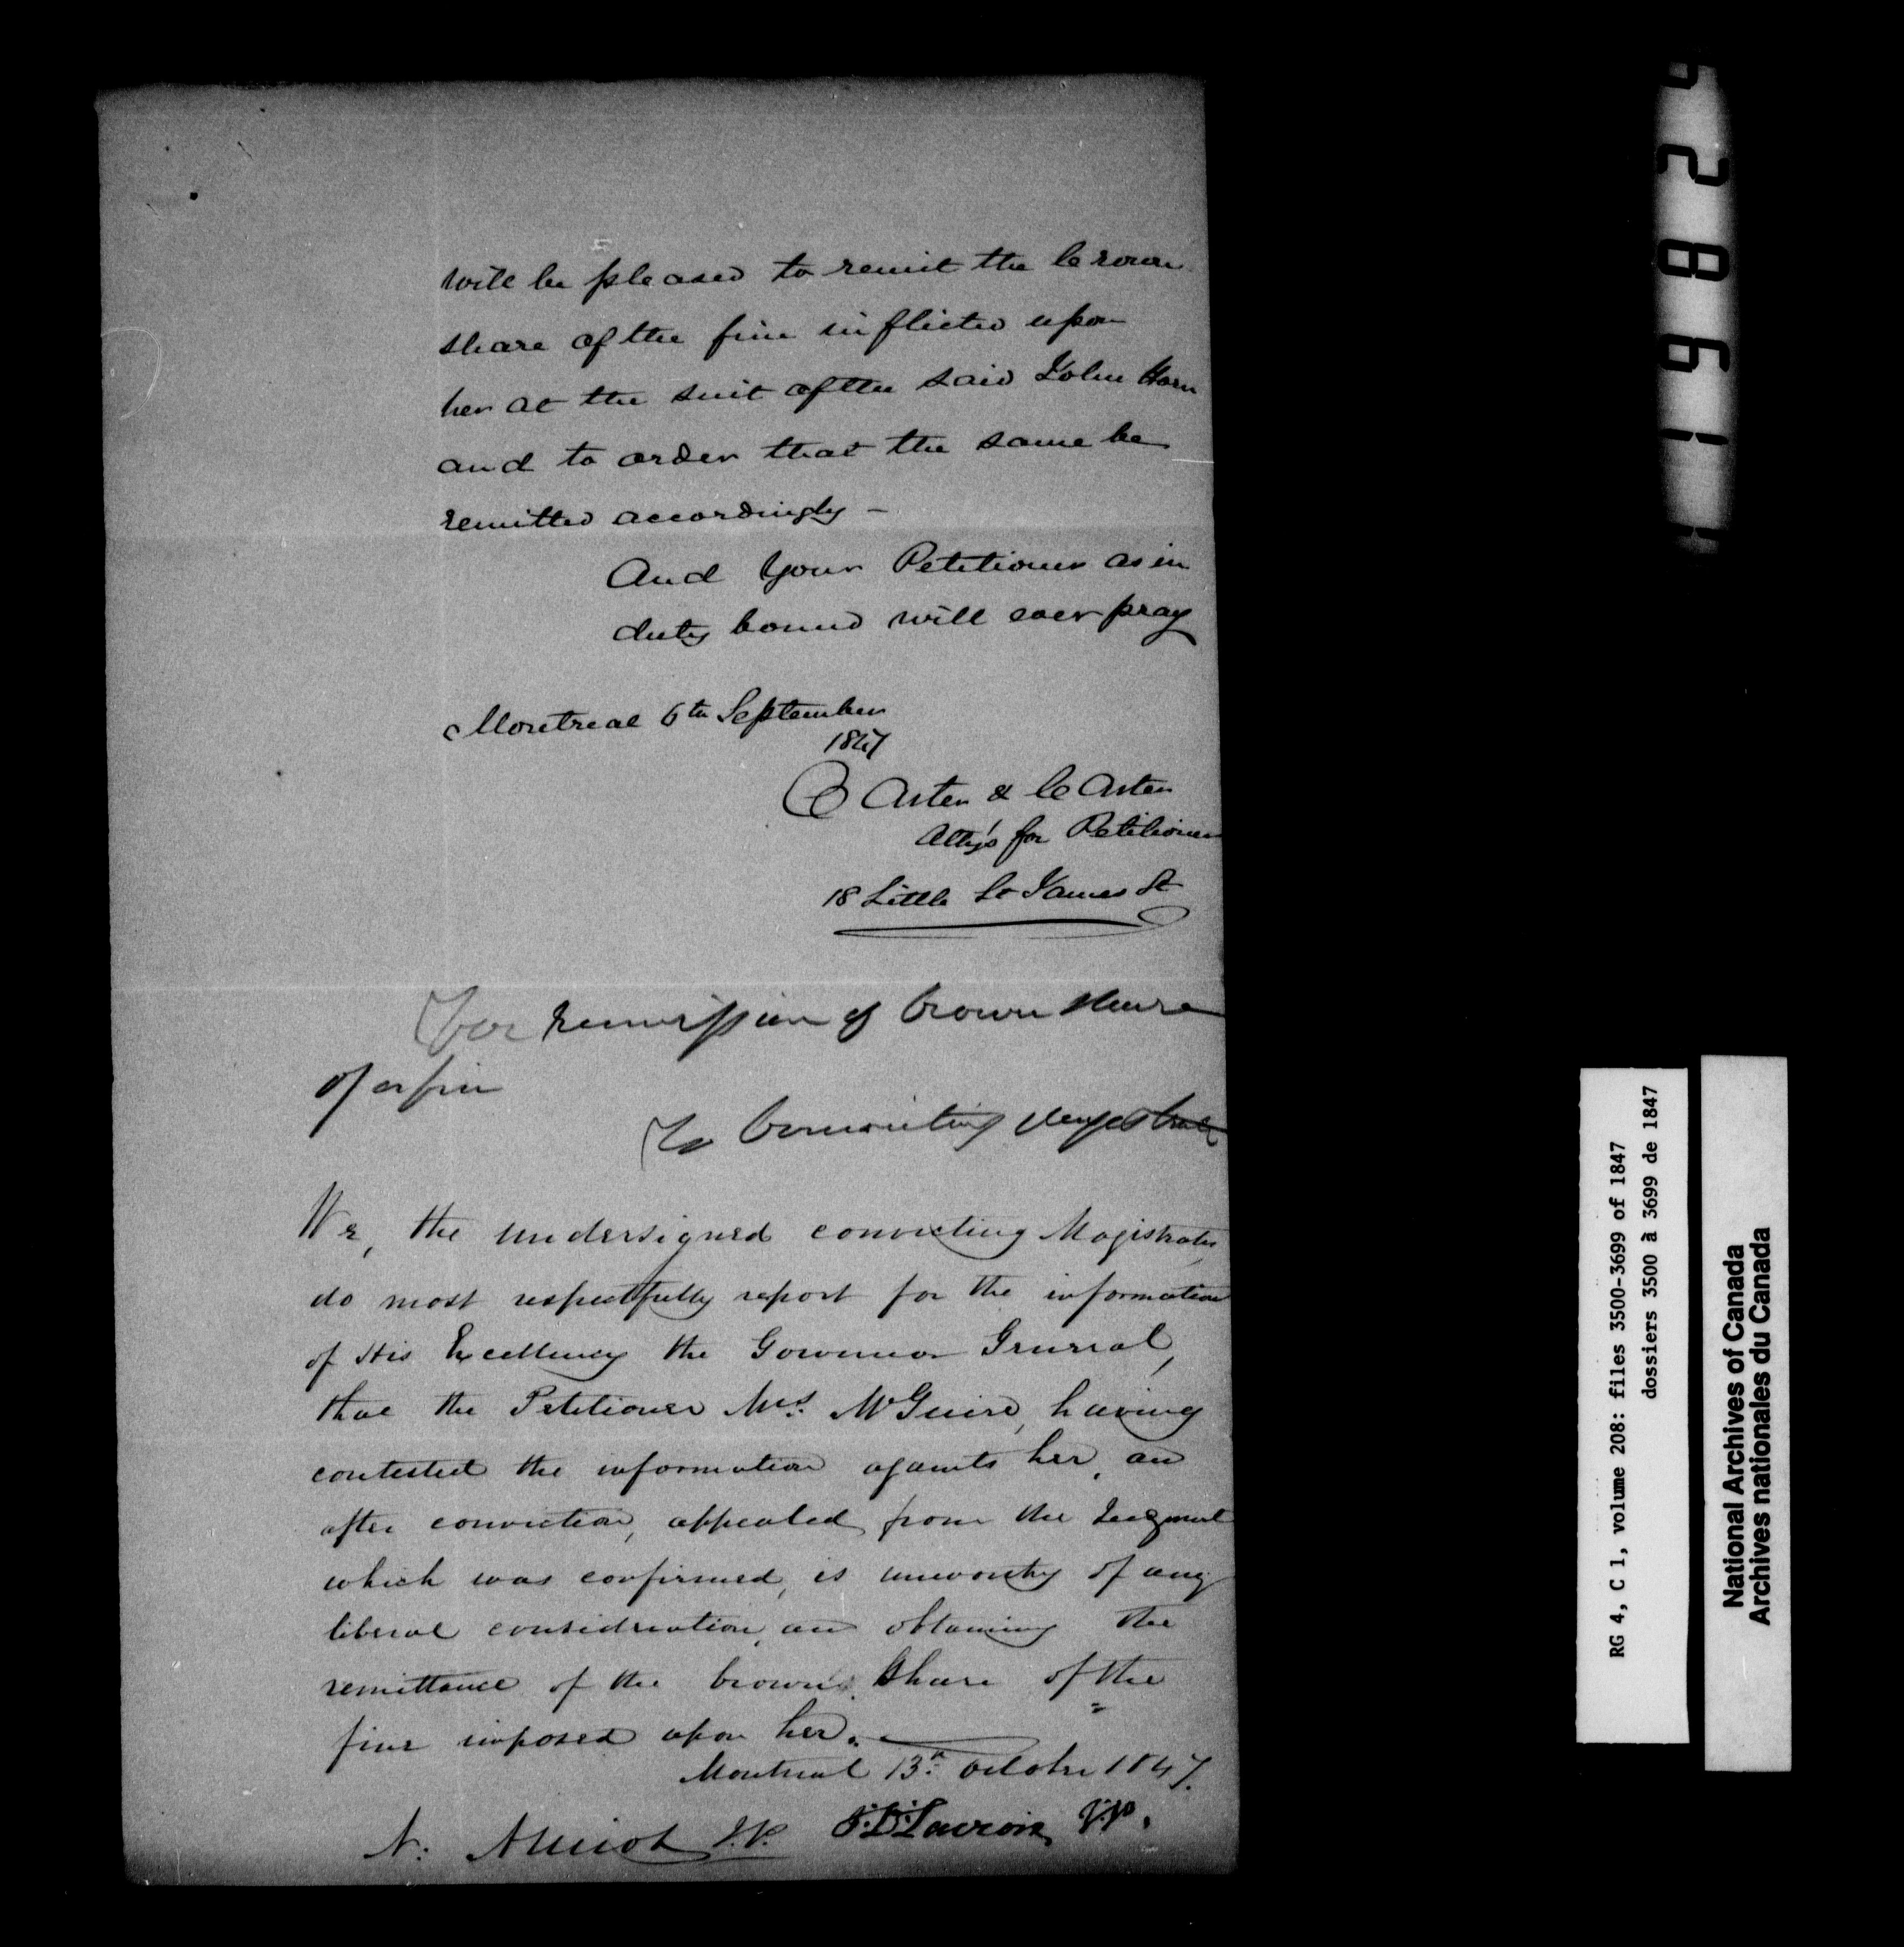 will be pleased to remit the Crown
share of the fine inflicted upon
her at the suit of the said John Horn
and to order that the same be
remitted accordingly –
And Your Petitioner as in
duty bound will ever pray
Montreal 6th September
1847
Carter & Carter
Atty's for Petitioner
18 Little St James St
For remission of Crown share
of a fine
To Convicting Magistrate
We, the undersigned convicting Magistrates,
do most respectfully report for the information
of His Excellency the Governor General,
that the Petitioner Mrs. McGuire, having
contested the information againts her, an
after conviction, appealed from the Judgment
which was confirmed, is unworthy of any
liberal consideration, an obtaining the
remittance of the Crown's share of the
fine imposed upon her.
Montreal 13th October 1847.
N. Amiot J.P. Lacroix J.P.
52861
RG 4, C 1, volume 208: files 3500-3699 of 1847
dossiers 3500 à 3699 de 1847
National Archives of Canada
Archives nationales du Canada